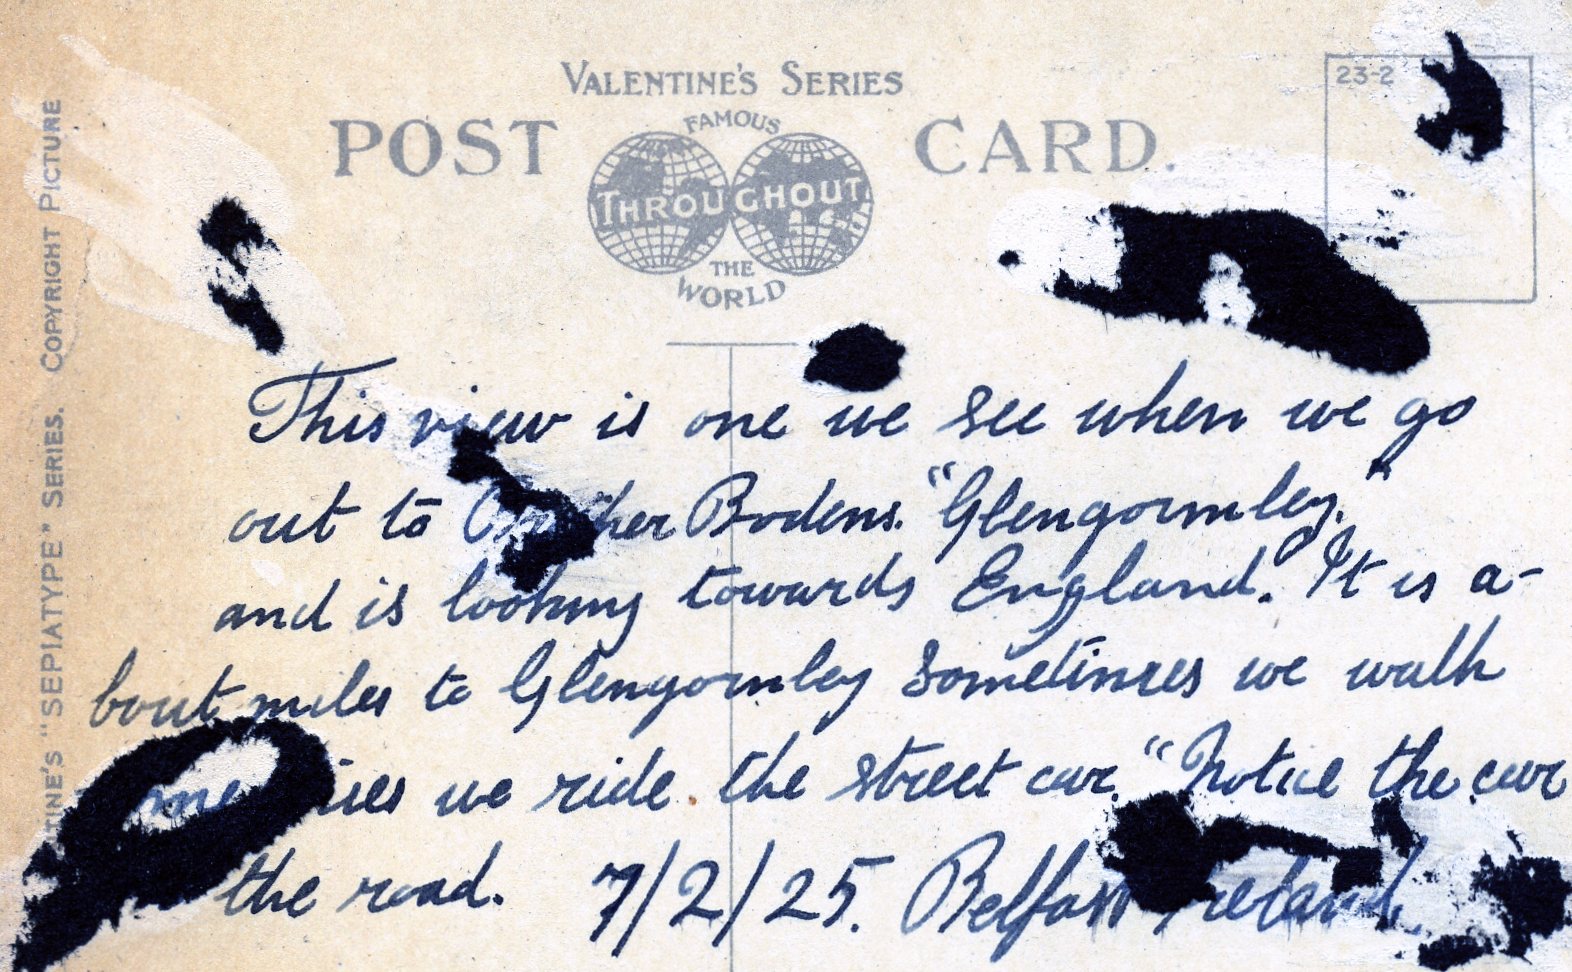 VALENTINE'S SERIES
POST CARD
FAMOUS
THROUGHOUT
THE
WORLD
23-2
TINE'S "SEPIATYPE" SERIES. COPYRIGHT PICTURE
This view is one we see when we go
out to Bodens. "Glengormley."
and is looking towards England. It is a-
bout miles to Glengormley Sometimes we walk
we ride the street car. "Notice the car
the road. 7/2/25. Belfast Ireland.